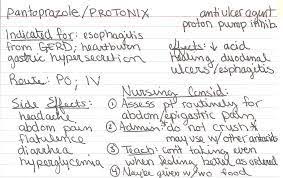 pantoprazole/PROTONIX
antiulcer agent
proton pump inhib.
Indicated for: esophagitis
from GERD; heartburn
gastric hypersecretion
effects: ↓ acid
healing duodenal
ulcers/esphagitis
Route: PO; IV
Side Effects:
headache
abdom pain
flatulence
diarrhea
hyperglycemia
Nursing Consid:
① Assess pt routinely for
abdom/epigastric pain
② Admin: do not crush*
may use w/ other antacids
③ Teach: cont taking even
when feeling better as ordered
④ Maybe given w/wo food